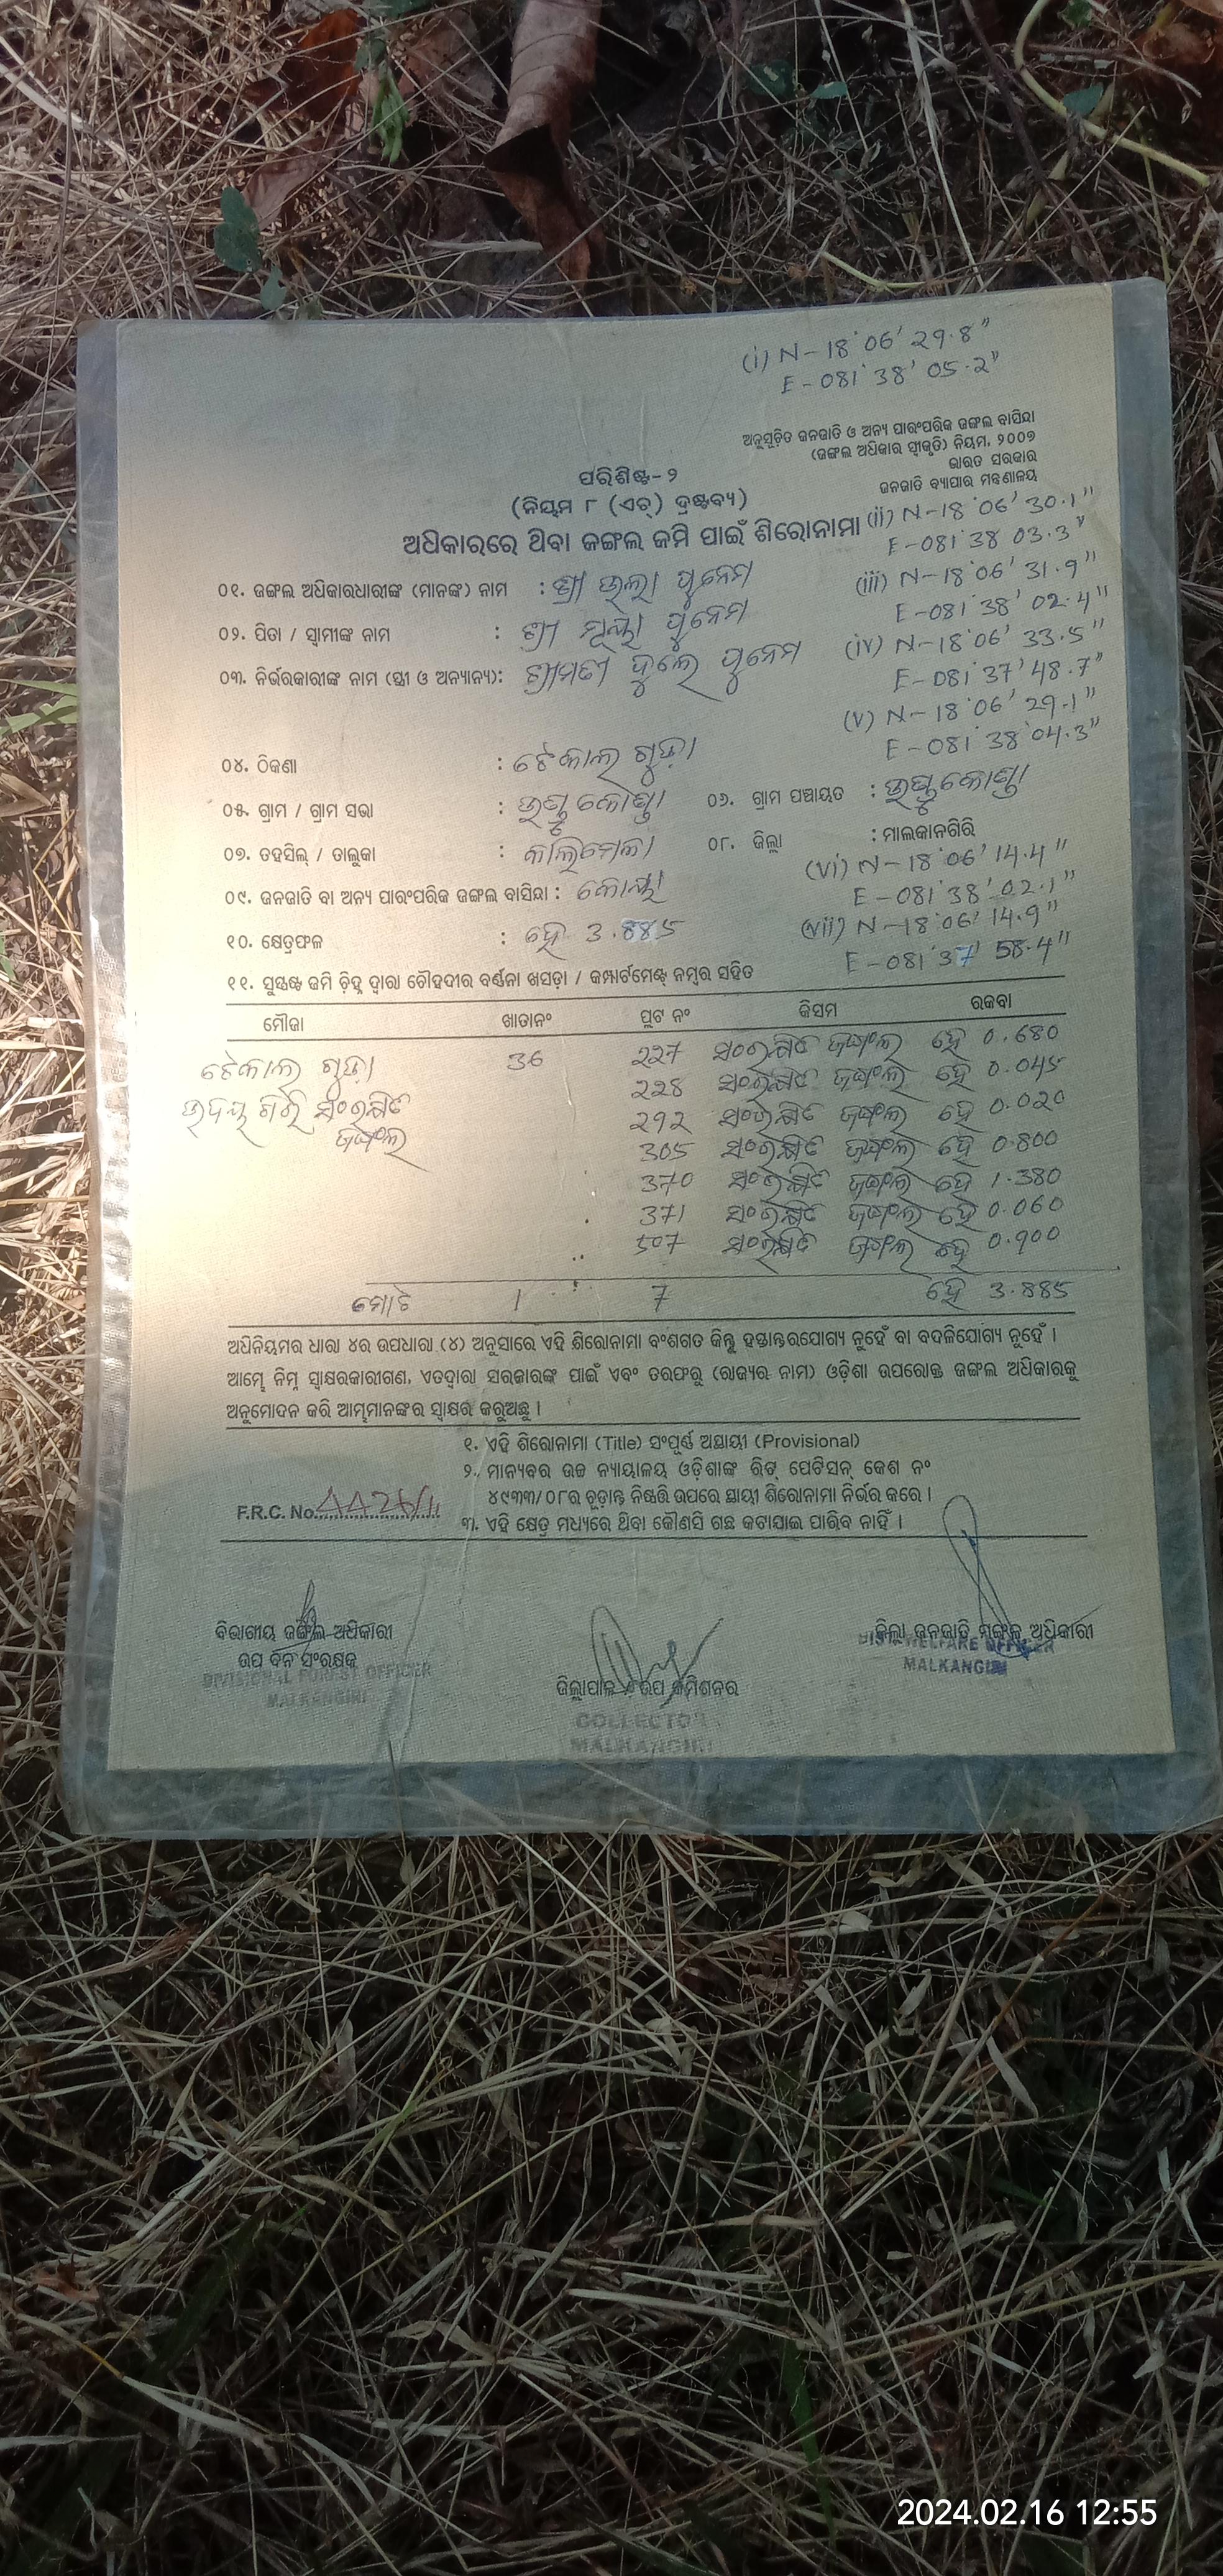 (i) N-18°06' 29.8"
E-081°38' 05.2"
ଅନୁସୂଚିତ ଜନଜାତି ଓ ଅନ୍ୟ ପାରଂପରିକ ଜଙ୍ଗଲ ବାସିନ୍ଦା
(ଜଙ୍ଗଲ ଅଧିକାର ସ୍ୱୀକୃତି) ନିୟମ, ୨୦୦୭
ଭାରତ ସରକାର
ଜନଜାତି ବ୍ୟାପାର ମନ୍ତ୍ରଣାଳୟ
ପରିଶିଷ୍ଟ-୨
(ନିୟମ ୮ (ଏଚ୍) ଦ୍ରଷ୍ଟବ୍ୟ)
(ii) N-18°06' 30.1"
E-081°38 03.3"
ଅଧିକାରରେ ଥିବା ଜଙ୍ଗଲ ଜମି ପାଇଁ ଶିରୋନାମା
(iii) N-18°06' 31.9"
E-081°38' 02.4"
୦୧. ଜଙ୍ଗଲ ଅଧିକାରଧାରୀଙ୍କ (ମାନଙ୍କ) ନାମ : ଶ୍ରୀ ଉଲା ପୁନେମ
୦୨. ପିତା / ସ୍ୱାମୀଙ୍କ ନାମ : ଶ୍ରୀ ମୂୟା ପୁନେମ
(iv) N-18°06' 33.5"
E-081°37' 48.7"
୦୩. ନିର୍ଭରକାରୀଙ୍କ ନାମ (ସ୍ତ୍ରୀ ଓ ଅନ୍ୟାନ୍ୟ): ଶ୍ରୀମତୀ ଦୁଲେ ପୁନେମ
(v) N-18°06' 29.1"
E-081°38'04.3"
୦୪. ଠିକଣା : ଟେକାଲ ଗୁଡ଼ା
୦୫. ଗ୍ରାମ / ଗ୍ରାମ ସଭା : ଉସ୍କୁକୋଣ୍ଡା ୦୬. ଗ୍ରାମ ପଞ୍ଚାୟତ : ଉସ୍କୁକୋଣ୍ଡା
୦୭. ତହସିଲ୍ / ତାଲୁକା : କାଲିମେଳା ୦୮. ଜିଲ୍ଲା : ମାଲକାନଗିରି
(vi) N-18°06' 14.4"
E-081°38' 02.1"
୦୯. ଜନଜାତି ବା ଅନ୍ୟ ପାରଂପରିକ ଜଙ୍ଗଲ ବାସିନ୍ଦା : କୋୟା
(vii) N-18°06' 14.9"
E-081°37' 58.4"
୧୦. କ୍ଷେତ୍ରଫଳ : ହେ 3.885
୧୧. ସୁସ୍ପଷ୍ଟ ଜମି ଚିହ୍ନ ଦ୍ୱାରା ଚୌହଦୀର ବର୍ଣ୍ଣନା ଖସଡ଼ା / କମ୍ପାର୍ଟମେଣ୍ଟ୍ ନମ୍ବର ସହିତ
ମୌଜା ଖାତାନଂ ପ୍ଲଟ ନଂ କିସମ ରକବା
ଟେକାଲ ଗୁଡ଼ା 36 227 ସଂରକ୍ଷିତ ଜଙ୍ଗଲ ହେ 0.680
228 ସଂରକ୍ଷିତ ଜଙ୍ଗଲ ହେ 0.045
ଉଦୟ ଗିରି ସଂରକ୍ଷିତ 292 ସଂରକ୍ଷିତ ଜଙ୍ଗଲ ହେ 0.020
ଜଙ୍ଗଲ 305 ସଂରକ୍ଷିତ ଜଙ୍ଗଲ ହେ 0.800
370 ସଂରକ୍ଷିତ ଜଙ୍ଗଲ ହେ 1.380
371 ସଂରକ୍ଷିତ ଜଙ୍ଗଲ ହେ 0.060
507 ସଂରକ୍ଷିତ ଜଙ୍ଗଲ ହେ 0.900
ମୋଟ 1 7 ହେ 3.885
ଅଧିନିୟମର ଧାରା ୪ର ଉପଧାରା (୪) ଅନୁସାରେ ଏହି ଶିରୋନାମା ବଂଶଗତ କିନ୍ତୁ ହସ୍ତାନ୍ତରଯୋଗ୍ୟ ନୁହେଁ ବା ବଦଳିଯୋଗ୍ୟ ନୁହେଁ ।
ଆମ୍ଭେ ନିମ୍ନ ସ୍ୱାକ୍ଷରକାରୀଗଣ, ଏତଦ୍ୱାରା ସରକାରଙ୍କ ପାଇଁ ଏବଂ ତରଫରୁ (ରାଜ୍ୟର ନାମ) ଓଡ଼ିଶା ଉପରୋକ୍ତ ଜଙ୍ଗଲ ଅଧିକାରକୁ
ଅନୁମୋଦନ କରି ଆମ୍ଭମାନଙ୍କର ସ୍ୱାକ୍ଷର କରୁଅଛୁ ।
୧. ଏହି ଶିରୋନାମା (Title) ସଂପୂର୍ଣ୍ଣ ଅସ୍ଥାୟୀ (Provisional)
୨. ମାନ୍ୟବର ଉଚ୍ଚ ନ୍ୟାୟାଳୟ ଓଡ଼ିଶାଙ୍କ ରିଟ୍ ପେଟିସନ୍ କେଶ ନଂ
୪୯୩୩/୦୮ର ଚୂଡ଼ାନ୍ତ ନିଷ୍ପତ୍ତି ଉପରେ ସ୍ଥାୟୀ ଶିରୋନାମା ନିର୍ଭର କରେ ।
F.R.C. No.
୩. ଏହି କ୍ଷେତ୍ର ମଧ୍ୟରେ ଥିବା କୌଣସି ଗଛ କଟାଯାଇ ପାରିବ ନାହିଁ ।
ବିଭାଗୀୟ ଜଙ୍ଗଲ ଅଧିକାରୀ
ଉପ ବନ ସଂରକ୍ଷକ
DIVISIONAL FOREST OFFICER
MALKANGIRI
ଜିଲ୍ଲାପାଳ ଓ ଉପ କମିଶନର
COLLECTOR
MALKANGIRI
ଜିଲ୍ଲା ଜନଜାତି ମଙ୍ଗଳ ଅଧିକାରୀ
DIST. WELFARE OFFICER
MALKANGIRI
2024.02.16 12:55